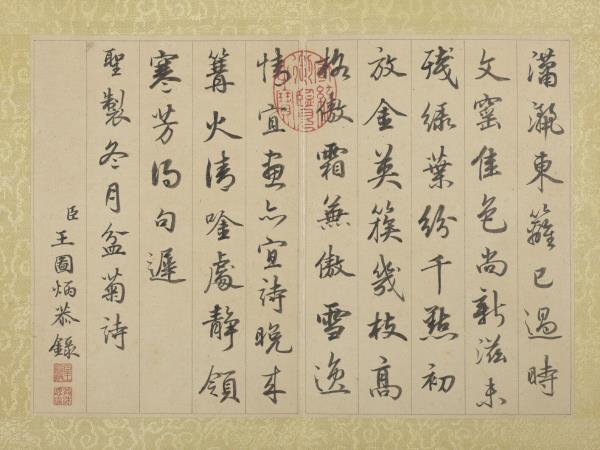 瀟灑東籬已過時
文窰佳色尚新滋未
殘綠葉紛千點初
放金英簇幾枝高
格傲霜兼傲雪逸
情宜畫亦宜詩晚來
篝火清唫處靜領
寒芳得句遲
聖製冬月盆菊詩
臣王圖炳恭錄